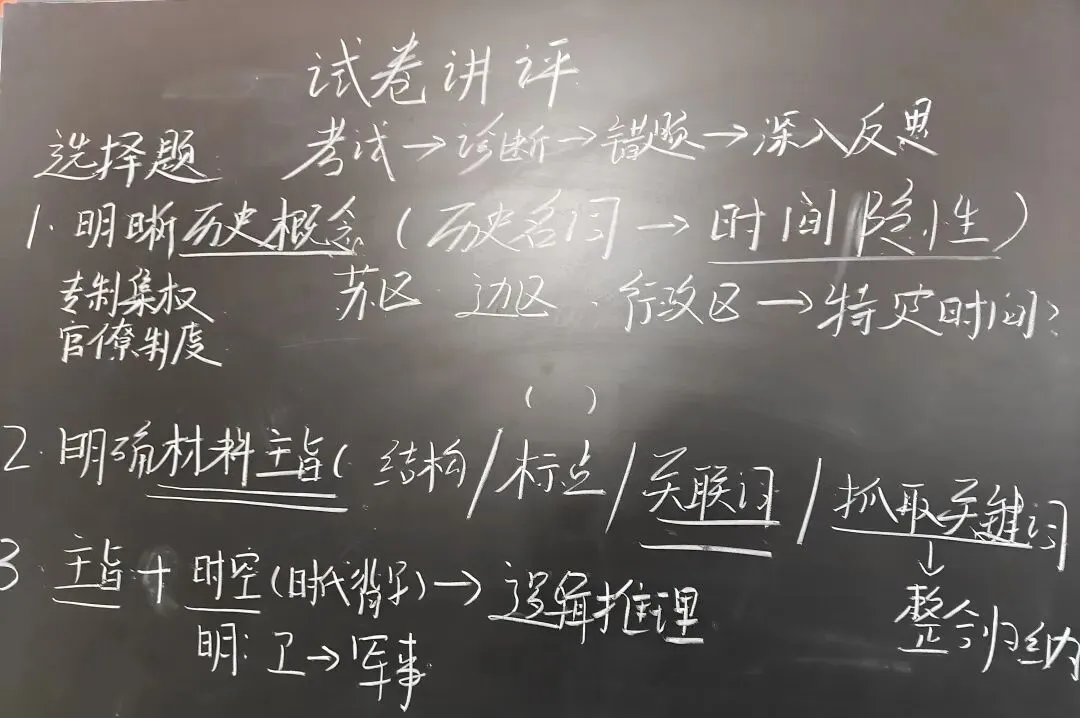 试卷讲评
考试→诊断→错题→深入反思
选择题
1. 明晰历史概念（历史名词→时间隐性）
专制集权
官僚制度
苏区 边区、行政区→特定时间？
（ ）
2. 明确材料主旨（结构/标点/关联词/抓取关键词
↓
整合归纳
3. 主旨+时空（时代背景）→逻辑推理
明：卫→军事